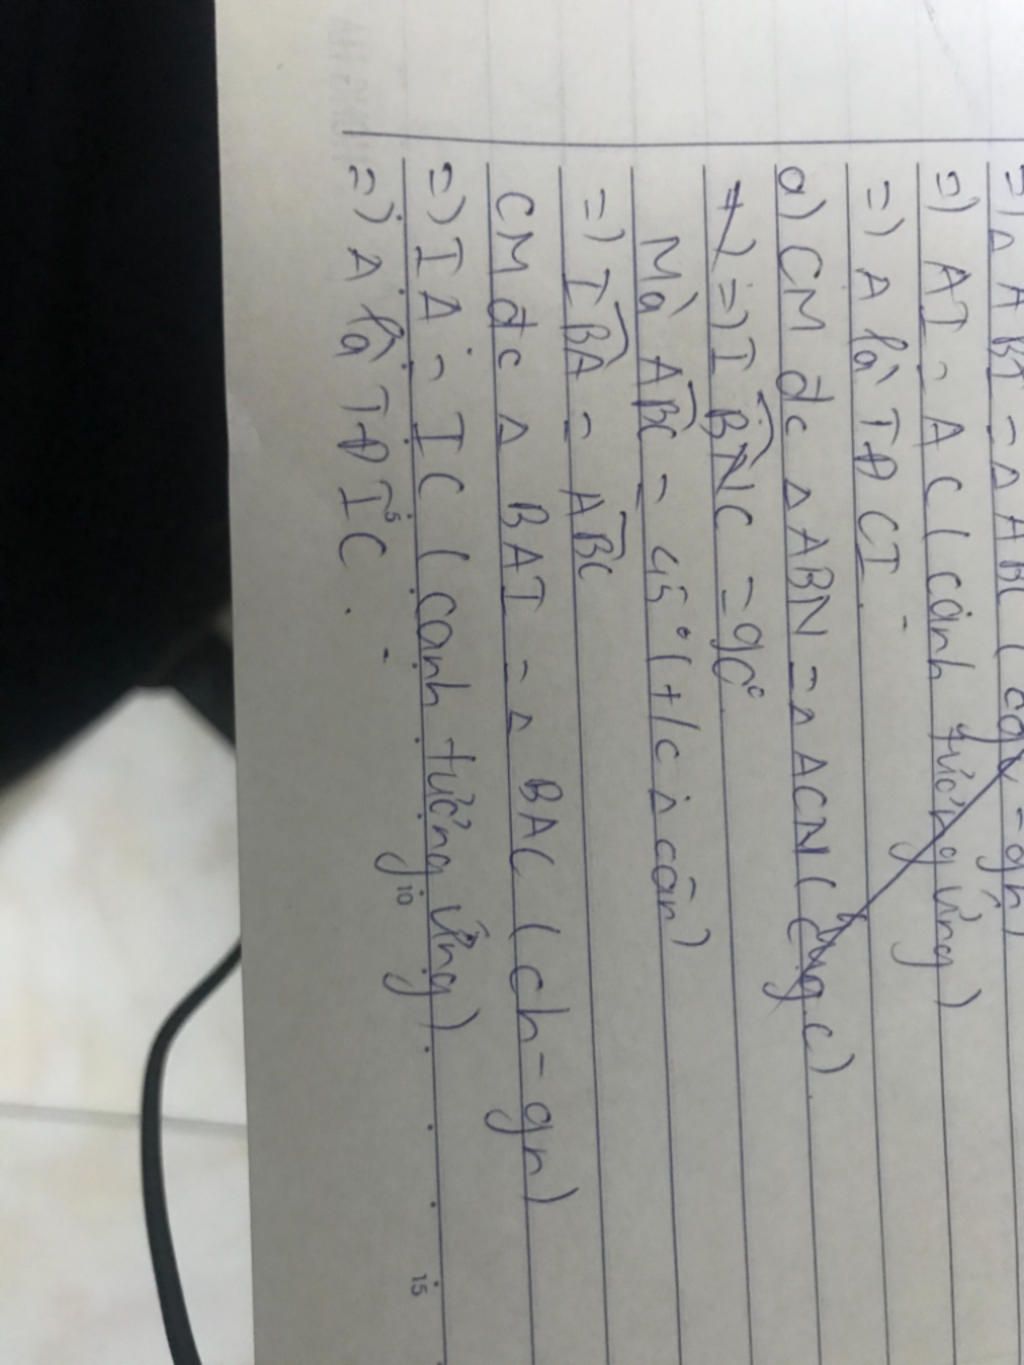 =) Δ ABI = Δ ABC ( cgv - gn)
=) AI = AC ( cảnh tương ứng)
=) A là TĐ CI
a) CM đc Δ ABN = Δ ACN ( c.g.c)
=) I BNC = 90°
Mà ABC = 45° ( t/c Δ cân)
=) IBA = ABC
CM đc Δ BAI = Δ BAC ( ch - gn)
=) IA = IC ( canh tương ứng)
=) A là TĐ IC.
5
10
15